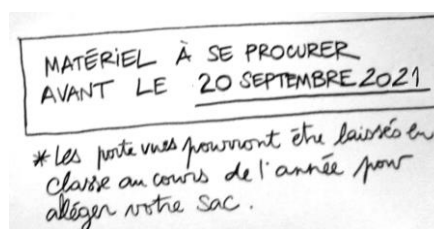 MATÉRIEL À SE PROCURER
AVANT LE 20 SEPTEMBRE 2021
* Les porte vues pourront être laissés en
classe au cours de l'année pour
alléger votre sac.